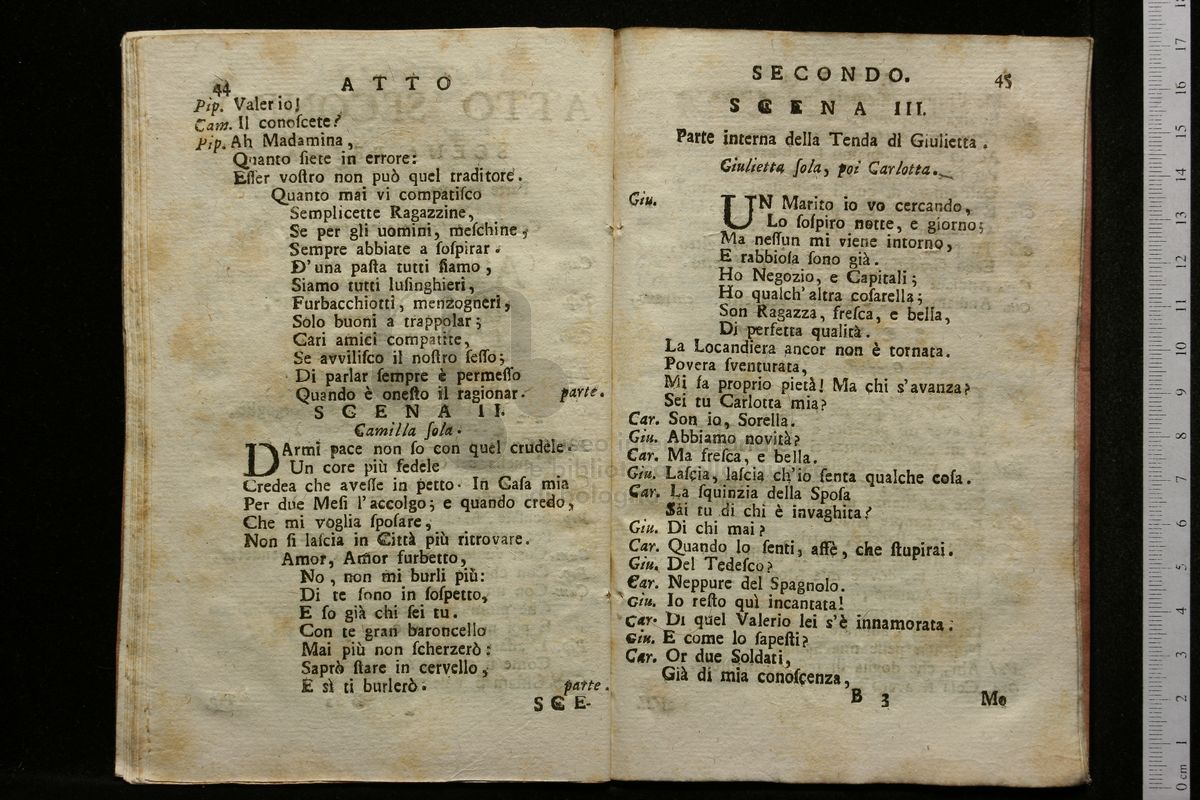 44
ATTO
Pip. Valerio!
Cam. Il conoſcete?
Pip. Ah Madamina,
Quanto ſiete in errore:
Eſſer voſtro non può quel traditore.
Quanto mai vi compatiſco
Semplicette Ragazzine,
Se per gli uomini, meſchine,
Sempre abbiate a ſoſpirar.
D'una paſta tutti ſiamo,
Siamo tutti luſinghieri,
Furbacchiotti, menzogneri,
Solo buoni a trappolar;
Cari amici compatite,
Se avviliſco il noſtro ſeſſo;
Di parlar ſempre è permeſſo
Quando è oneſto il ragionar. parte.
SCENA II.
Camilla ſola.
DArmi pace non ſo con quel crudele.
Un core più fedele
Credea che aveſſe in petto. In Caſa mia
Per due Meſi l'accolgo; e quando credo,
Che mi voglia ſpoſare,
Non ſi laſcia in Città più ritrovare.
Amor, Amor furbetto,
No, non mi burli più:
Di te ſono in ſoſpetto,
E ſo già chi ſei tu.
Con te gran baroncello
Mai più non ſcherzerò:
Saprò ſtare in cervello,
E sì ti burlerò. parte.
SCE-
SECONDO.
45
SCENA III.
Parte interna della Tenda di Giulietta.
Giulietta ſola, poi Carlotta.
Giu. UN Marito io vo cercando,
Lo ſoſpiro notte, e giorno;
Ma neſſun mi viene intorno,
E rabbioſa ſono già.
Ho Negozio, e Capitali;
Ho qualch'altra coſarella;
Son Ragazza, freſca, e bella,
Di perfetta qualità.
La Locandiera ancor non è tornata.
Povera ſventurata,
Mi fa proprio pietà! Ma chi s'avanza?
Sei tu Carlotta mia?
Car. Son io, Sorella.
Giu. Abbiamo novità?
Car. Ma freſca, e bella.
Giu. Laſcia, laſcia ch'io ſenta qualche coſa.
Car. La ſquinzia della Spoſa
Sai tu di chi è invaghita?
Giu. Di chi mai?
Car. Quando lo ſenti, affè, che ſtupirai.
Giu. Del Tedeſco?
Car. Neppure del Spagnolo.
Giu. Io reſto quì incantata!
Car. Di quel Valerio lei s'è innamorata.
Giu. E come lo ſapeſti?
Car. Or due Soldati,
Già di mia conoſcenza,
B 3
Mo